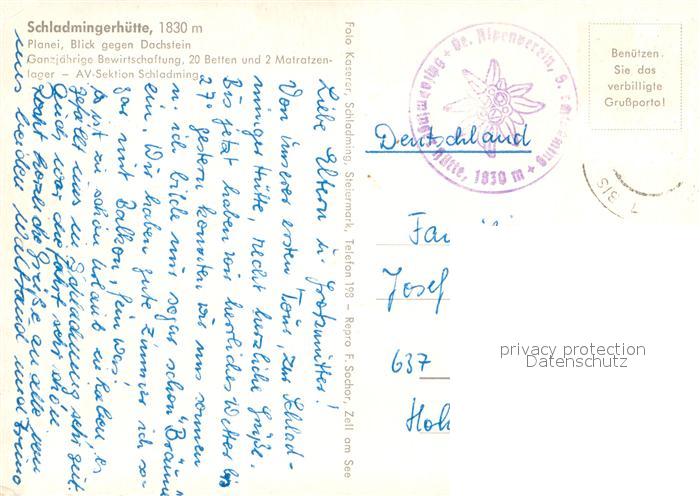 Schladmingerhütte, 1830 m
Planei, Blick gegen Dachstein
Ganzjährige Bewirtschaftung, 20 Betten und 2 Matratzen-
lager – AV-Sektion Schladming
Foto Kaserer, Schladming, Steiermark, Telefon 198 – Repro F. Sochor, Zell am See
Liebe Eltern u. Großmutter!
Von unserer ersten Tour, zur Schlad-
minger Hütte, recht herzliche Grüße.
Bis jetzt haben wir herrliches Wetter bis
27° gestern konnten wir uns sonnen
u. ich bilde mir sogar schon "Bräune"
ein. Wir haben gute Zimmer ich so-
gar mit Balkon, fein was,
es ist zu schön Urlaub zu haben, es
gefällt uns in Schladming sehr gut.
Auch war die Fahrt sehr schön.
Recht herzliche Grüße an alle von
uns beiden Waltraud und
Oe. Alpenverein, S. Schladming
Schladmingerhütte, 1830 m
Benützen
Sie das
verbilligte
Grußporto!
Deutschland
Fa
Josef
637
Hoh
privacy protection
Datenschutz